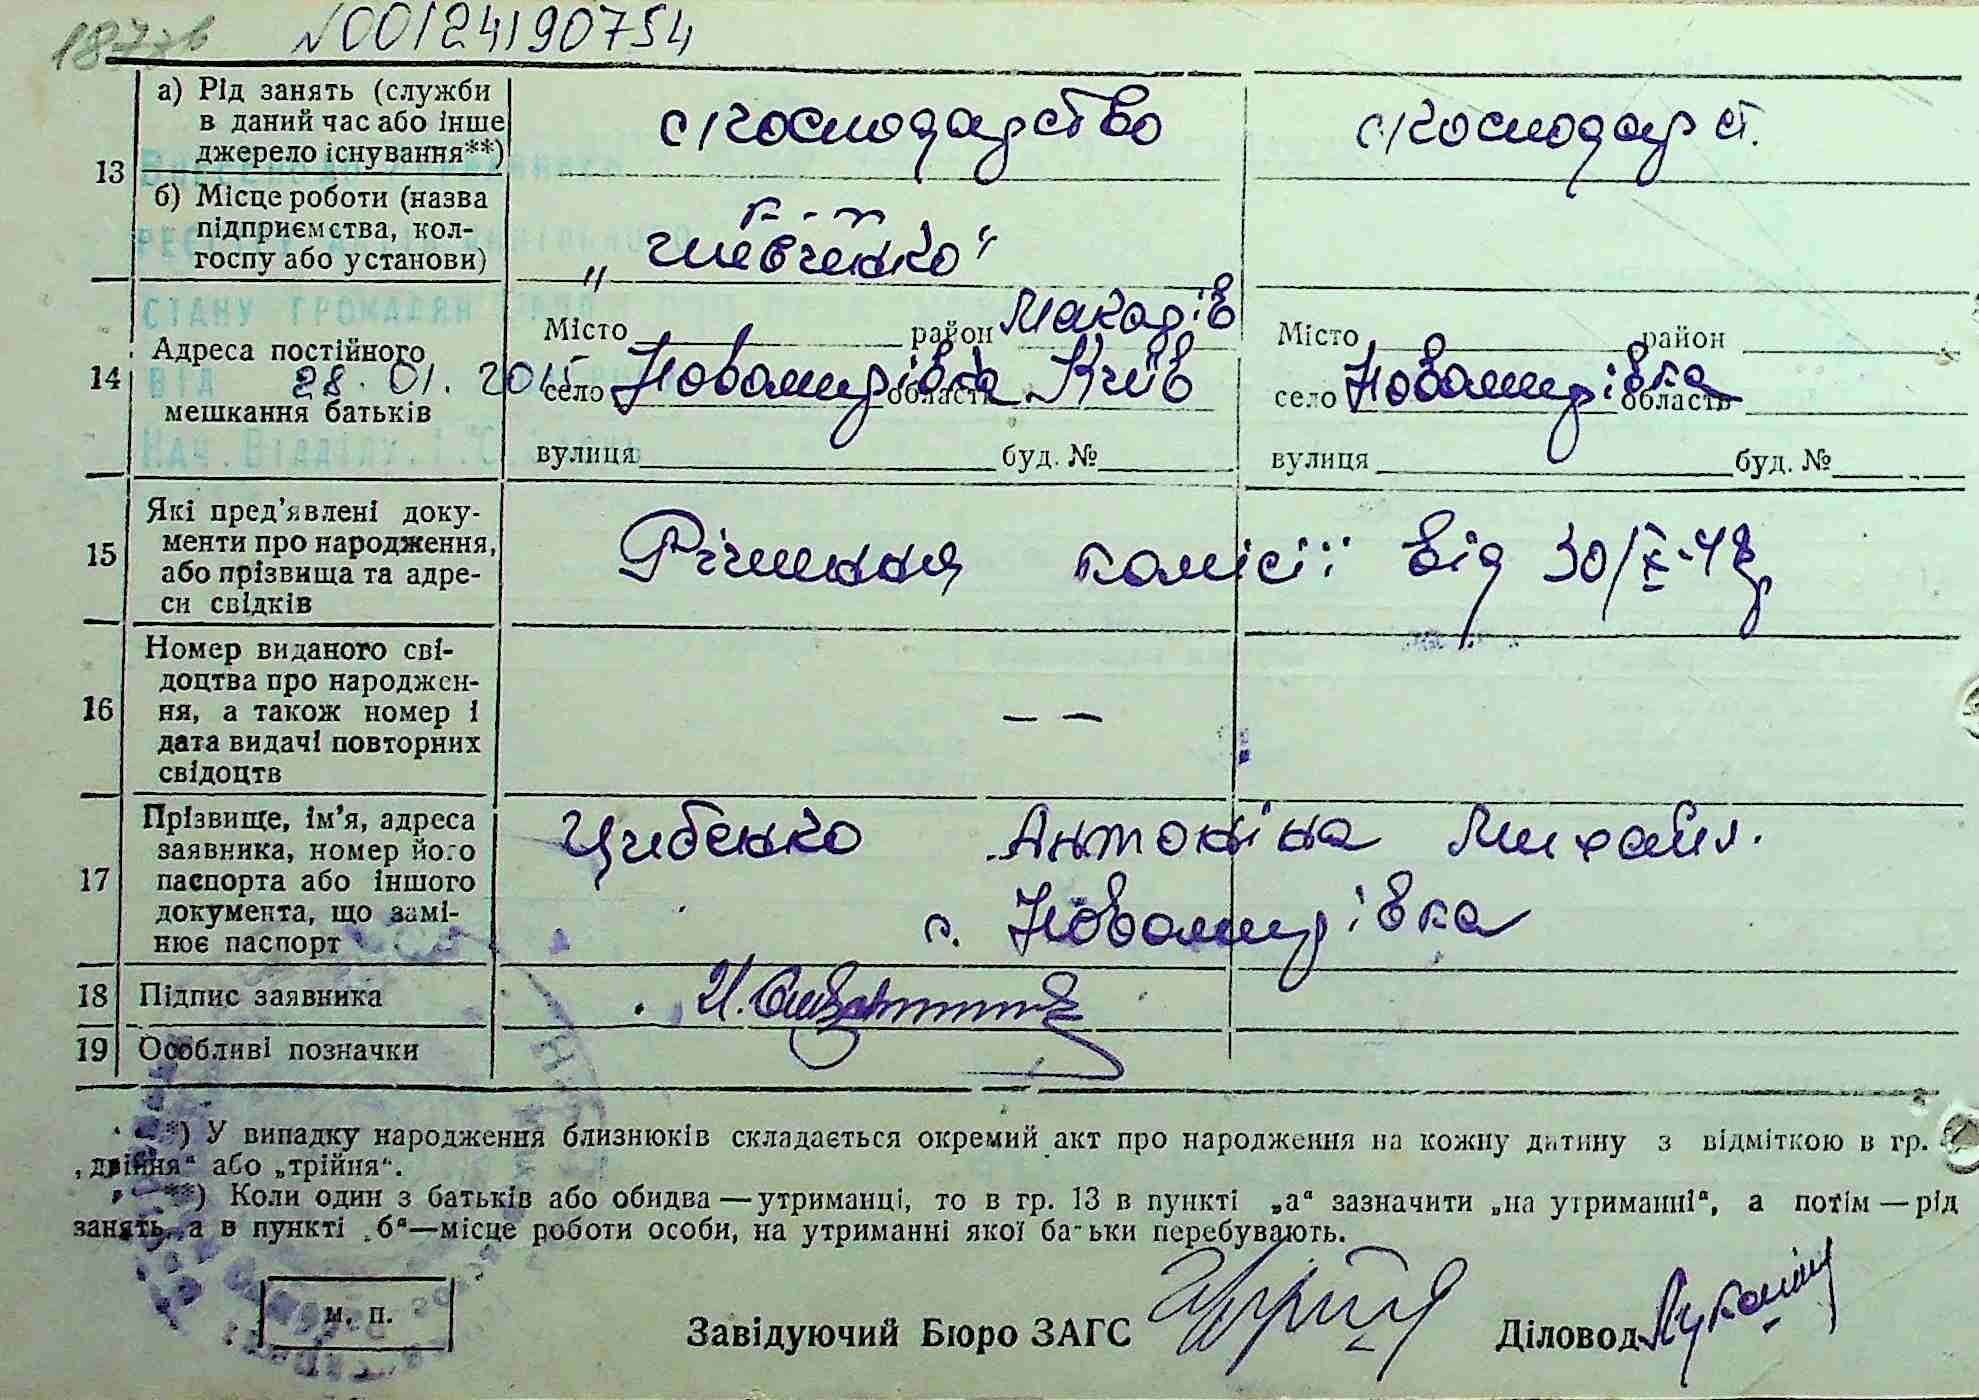 N00124190754
а) Рід занять (служби
в даний час або інше
джерело існування**)
с/господарство
с/господарст.
13
б) Місце роботи (назва
підприємства, кол-
госпу або установи)
К-т
„Шевченко"
14
Адреса постійного
мешкання батьків
28. 01. 2015
Місто район Макарів
село Новомирівка область Київ
вулиця буд. №
Місто район
село Новомирівка область
вулиця буд. №
15
Які пред'явлені доку-
менти про народження,
або прізвища та адре-
си свідків
Рішення комісії від 30/X-48р
16
Номер виданого сві-
доцтва про народжен-
ня, а також номер і
дата видачі повторних
свідоцтв
— —
17
Прізвище, ім'я, адреса
заявника, номер його
паспорта або іншого
документа, що замі-
нює паспорт
Цибенко Антоніна Михайл.
с. Новомирівка
18 Підпис заявника
19 Особливі позначки
*) У випадку народження близнюків складається окремий акт про народження на кожну дитину з відміткою в гр.
„двійня" або „трійня".
**) Коли один з батьків або обидва — утриманці, то в гр. 13 в пункті „а" зазначити „на утриманні", а потім — рід
занять, а в пункті „б"—місце роботи особи, на утриманні якої батьки перебувають.
м. п.
Завідуючий Бюро ЗАГС
Діловод